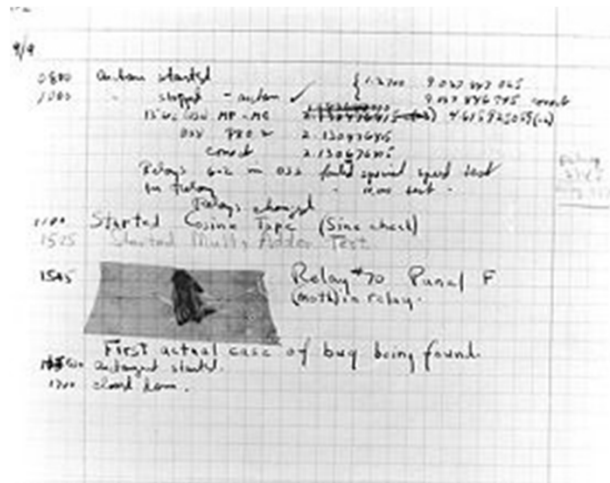 9/9
0800 antan started { 1.2700 9.037 847 025
1000 " stopped - antan ✓ 9.037 846 795 correct
13" UC (032) MP - MC 2.130476415 (-3) 4.615925059(-2)
033 PRO 2 2.130476415
correct 2.130676415
Relays 6-2 in 033 failed special speed test
in relay " test .
Relays changed
1100 Started Cosine Tape (Sine check)
1525 Started Mult+ Adder Test.
1545 Relay #70 Panel F
(moth) in relay.
First actual case of bug being found.
antangent started.
1700 closed down.